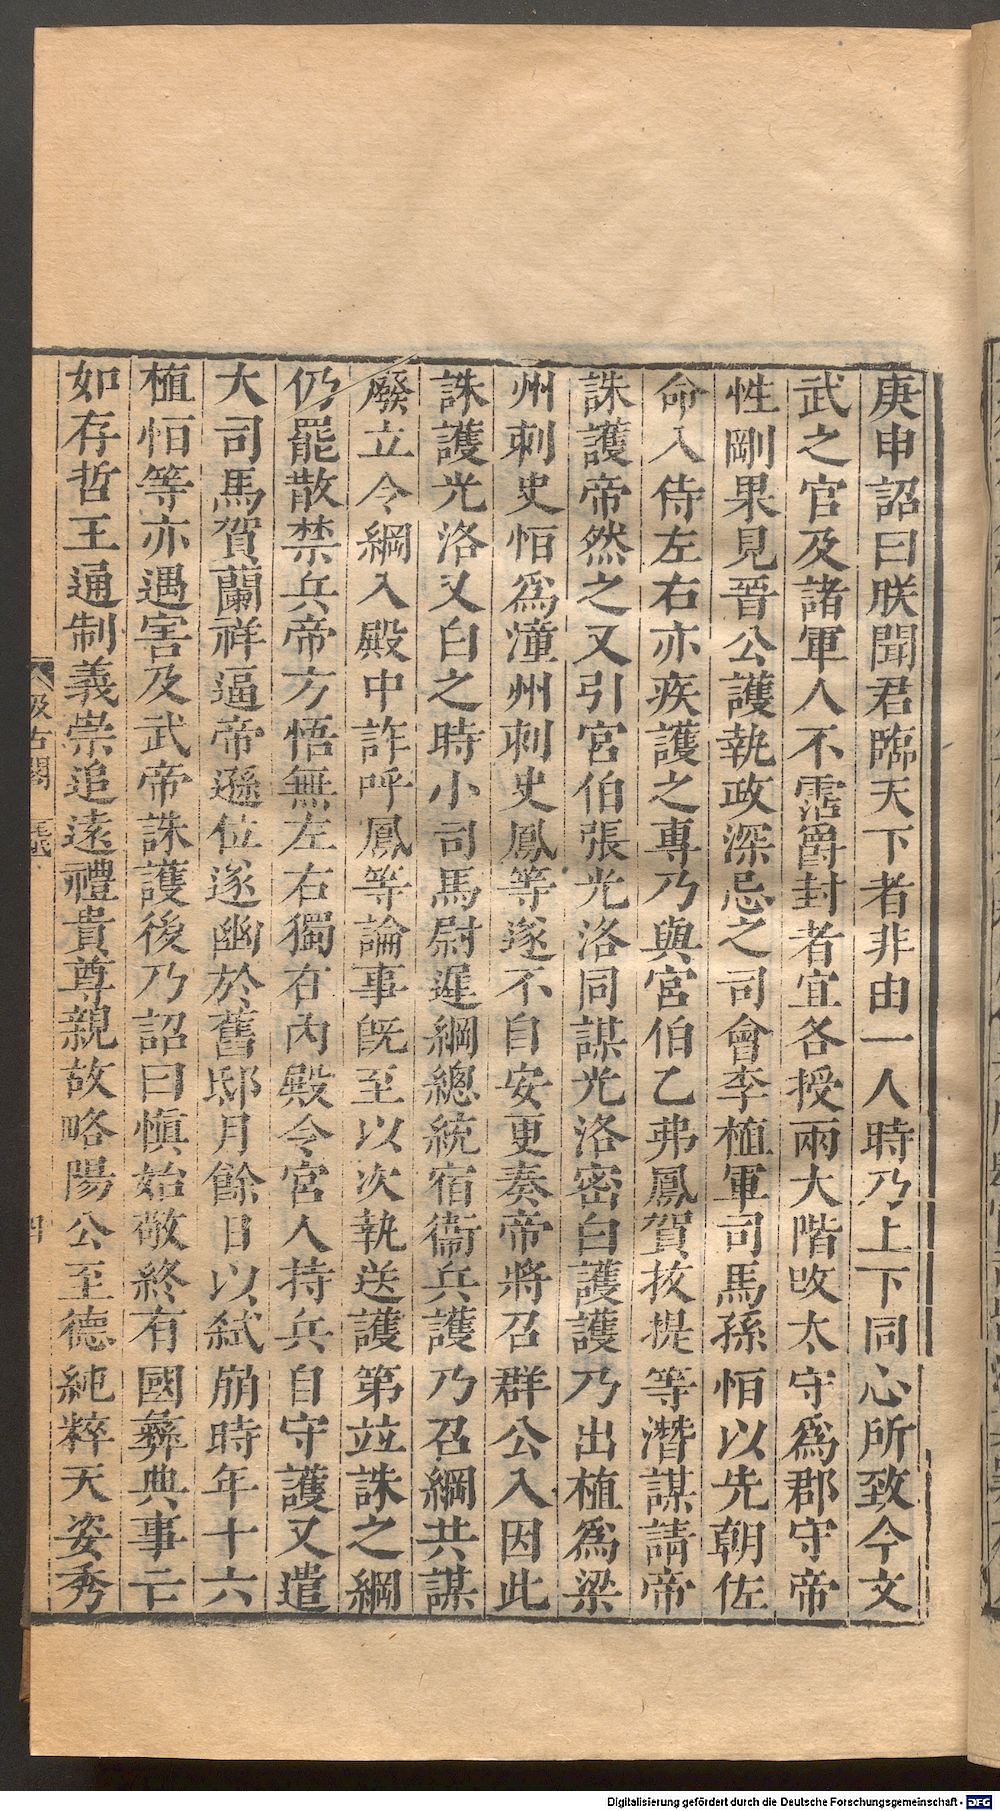 庚申詔曰朕聞君臨天下者非由一人時乃上下同心所致今文
武之官及諸軍人不霑爵封者宜各授兩大階改太守爲郡守帝
性剛果見晉公護執政深忌之司會李植軍司馬孫恒以先朝佐
命入侍左右亦疾護之專乃與宮伯乙弗鳳賀拔提等潛謀請帝
誅護帝然之又引宮伯張光洛同謀光洛密白護護乃出植爲梁
州刺史恒爲潼州刺史鳳等遂不自安更奏帝將召群公入因此
誅護光洛又白之時小司馬尉遲綱總統宿衞兵護乃召綱共謀
廢立令綱入殿中詐呼鳳等論事旣至以次執送護第竝誅之綱
仍罷散禁兵帝方悟無左右獨在內殿令宮人持兵自守護又遣
大司馬賀蘭祥逼帝遜位遂幽於舊邸月餘日以弑崩時年十六
植恒等亦遇害及武帝誅護後乃詔曰慎始敬終有國彝典事亡
如存哲王通制義崇追遠禮貴尊親故略陽公至德純粹天姿秀
汲古閣
四
Digitalisierung gefördert durch die Deutsche Forschungsgemeinschaft - DFG